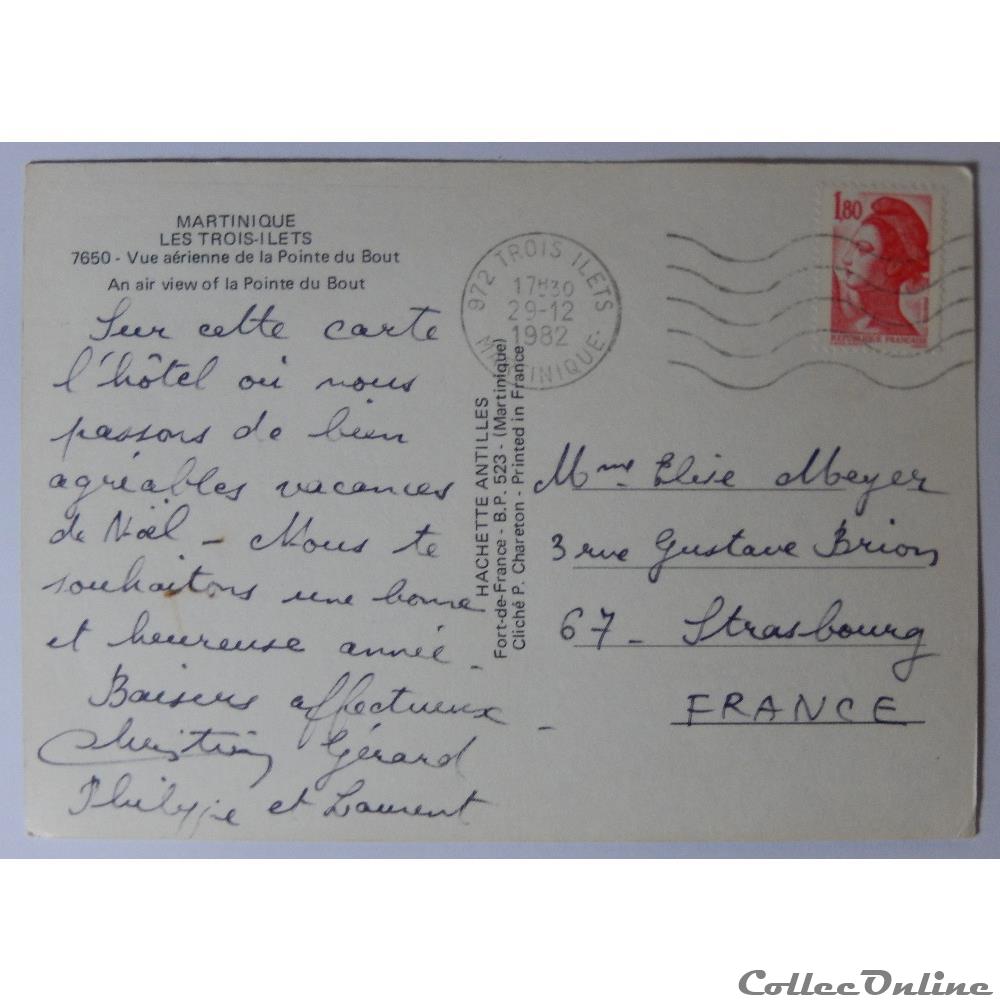 MARTINIQUE
LES TROIS-ILETS
7650 - Vue aérienne de la Pointe du Bout
An air view of la Pointe du Bout
Sur cette carte
l'hôtel où nous
passons de bien
agréables vacances
de Noël - Nous te
souhaitons une bonne
et heureuse année -
Baisers affectueux -
Gérard
Philippe et Laurent
HACHETTE ANTILLES
Fort-de-France - B.P. 523 - (Martinique)
Cliché P. Chareton - Printed in France
972 TROIS ILETS
17H30
29-12
1982
MARTINIQUE.
1,80
REPUBLIQUE FRANÇAISE
Mme Elise Meyer
3 rue Gustave Brion
67 - Strasbourg
FRANCE
CollecOnline